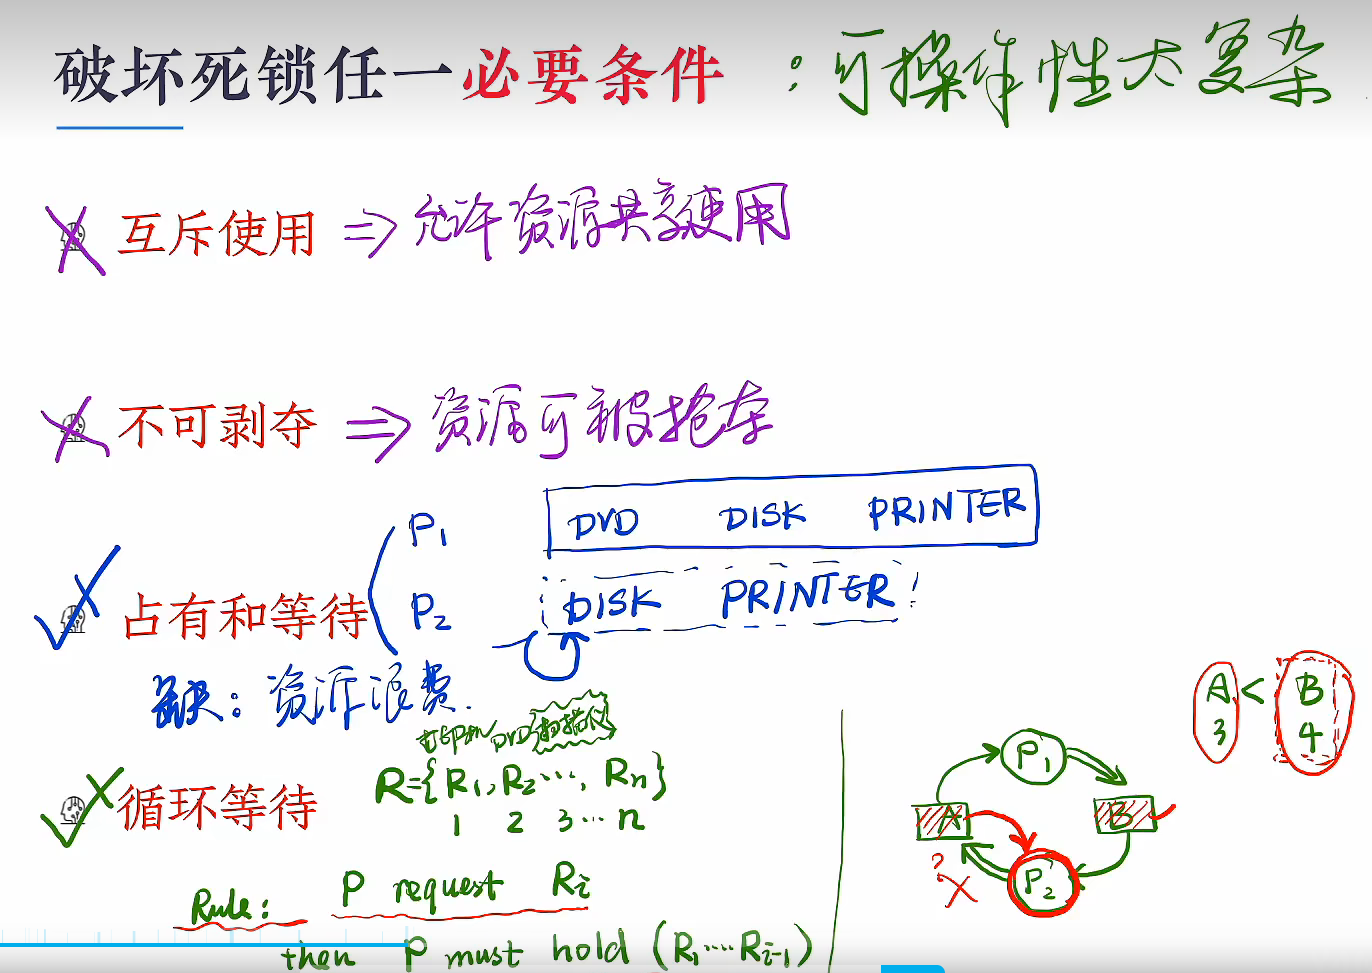 破坏死锁任一必要条件 : 可操作性大复杂
互斥使用 => 允许资源共享使用
不可剥夺 => 资源可被抢夺
P1 DVD DISK PRINTER
占有和等待 P2 DISK PRINTER
缺: 资源浪费.
打印机 DVD 扫描仪
循环等待 R={R1, R2 ···, Rn}
1 2 3 ··· n
Rule: P request Ri
then P must hold (R1 ···· Ri-1)
A < B
3 4
P1
A B
? X P2